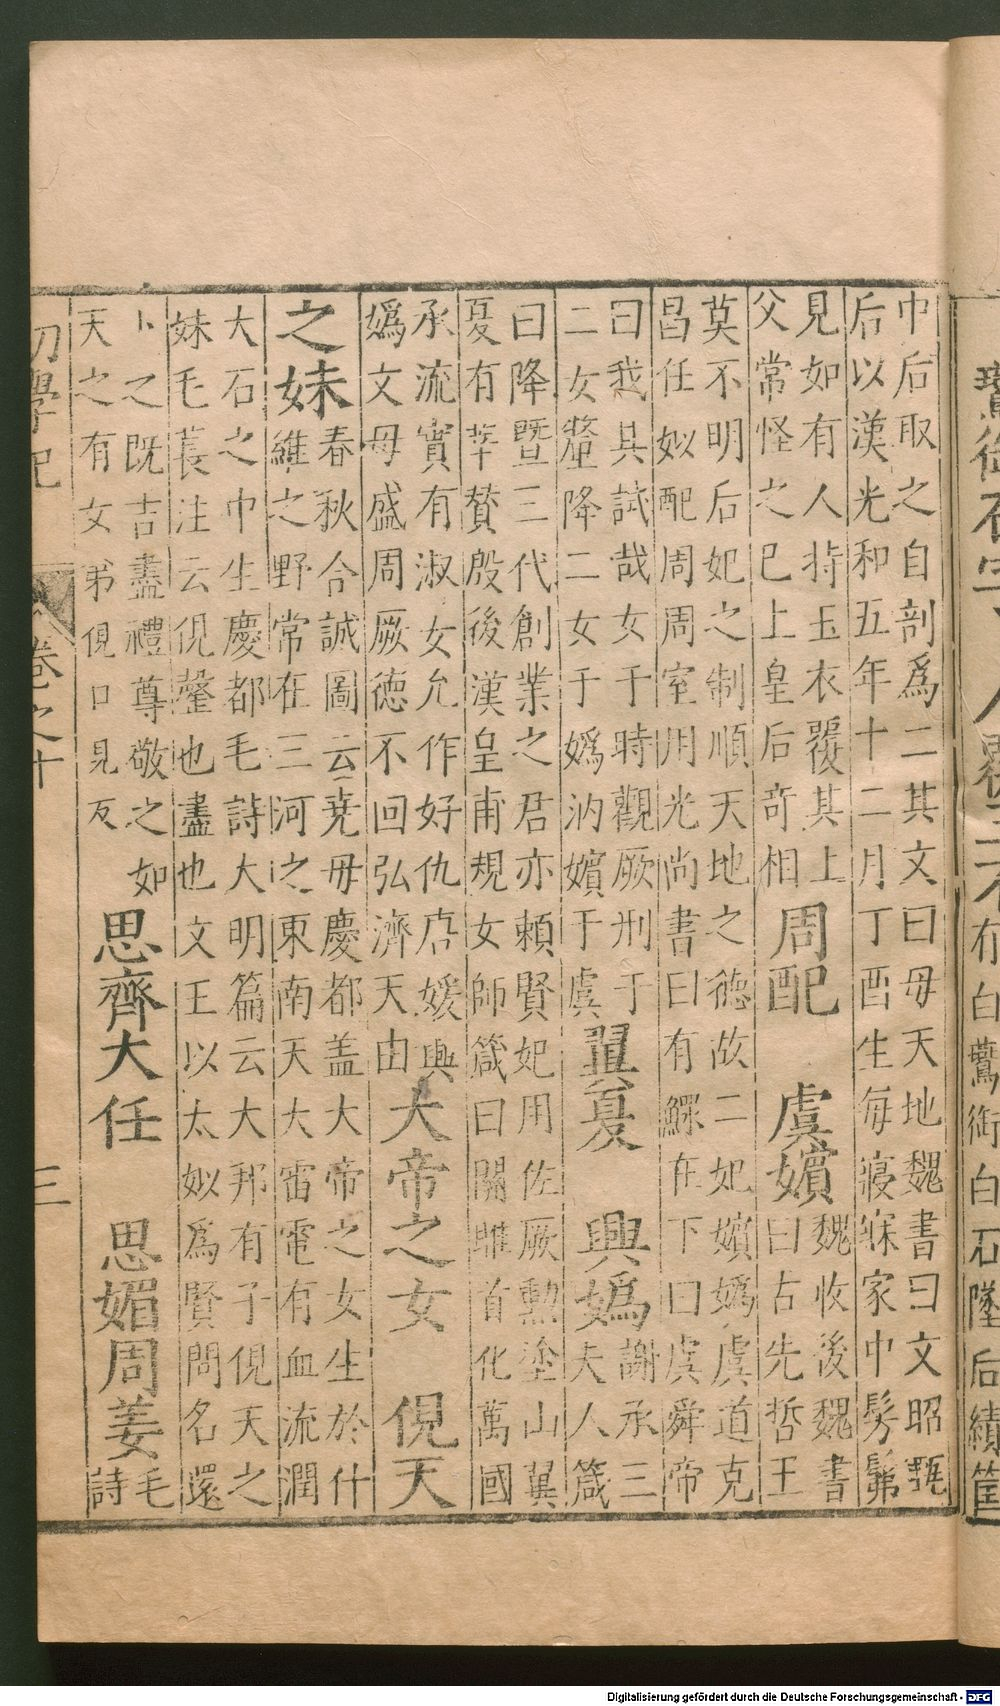 巾后取之自剖爲二其文曰母天地魏書曰文昭甄
后以漢光和五年十二月丁酉生每寢寐家中髣髴
見如有人持玉衣覆其上
父常怪之巳上皇后奇相
周配
虞嬪
魏收後魏書
曰古先哲王
莫不明后妃之制順天地之德故二妃嬪嬀虞道克
昌任姒配周周室用光尚書曰有鰥在下曰虞舜帝
曰我其試哉女于時觀厥刑于
二女釐降二女于嬀汭嬪于虞
翼夏
興嬀
謝承三
夫人箴
曰降暨三代創業之君亦賴賢妃用佐厥勳塗山翼
夏有莘贊殷後漢皇甫規女師箴曰關雎首化萬國
承流實有淑女允作好仇后媛興
嬀文母盛周厥德不回弘濟天由
大帝之女
俔天
之妹
春秋合誠圖云堯母慶都盖大帝之女生於什
維之野常在三河之東南天大雷電有血流潤
大石之中生慶都毛詩大明篇云大邦有子俔天之
妹毛萇注云俔罄也盡也文王以太姒爲賢問名還
卜之既吉盡禮尊敬之如
天之有女弟俔口見反
思齊大任
思媚周姜
毛
詩
初學記
卷之十
三
有白鷰銜白石墜后績筐